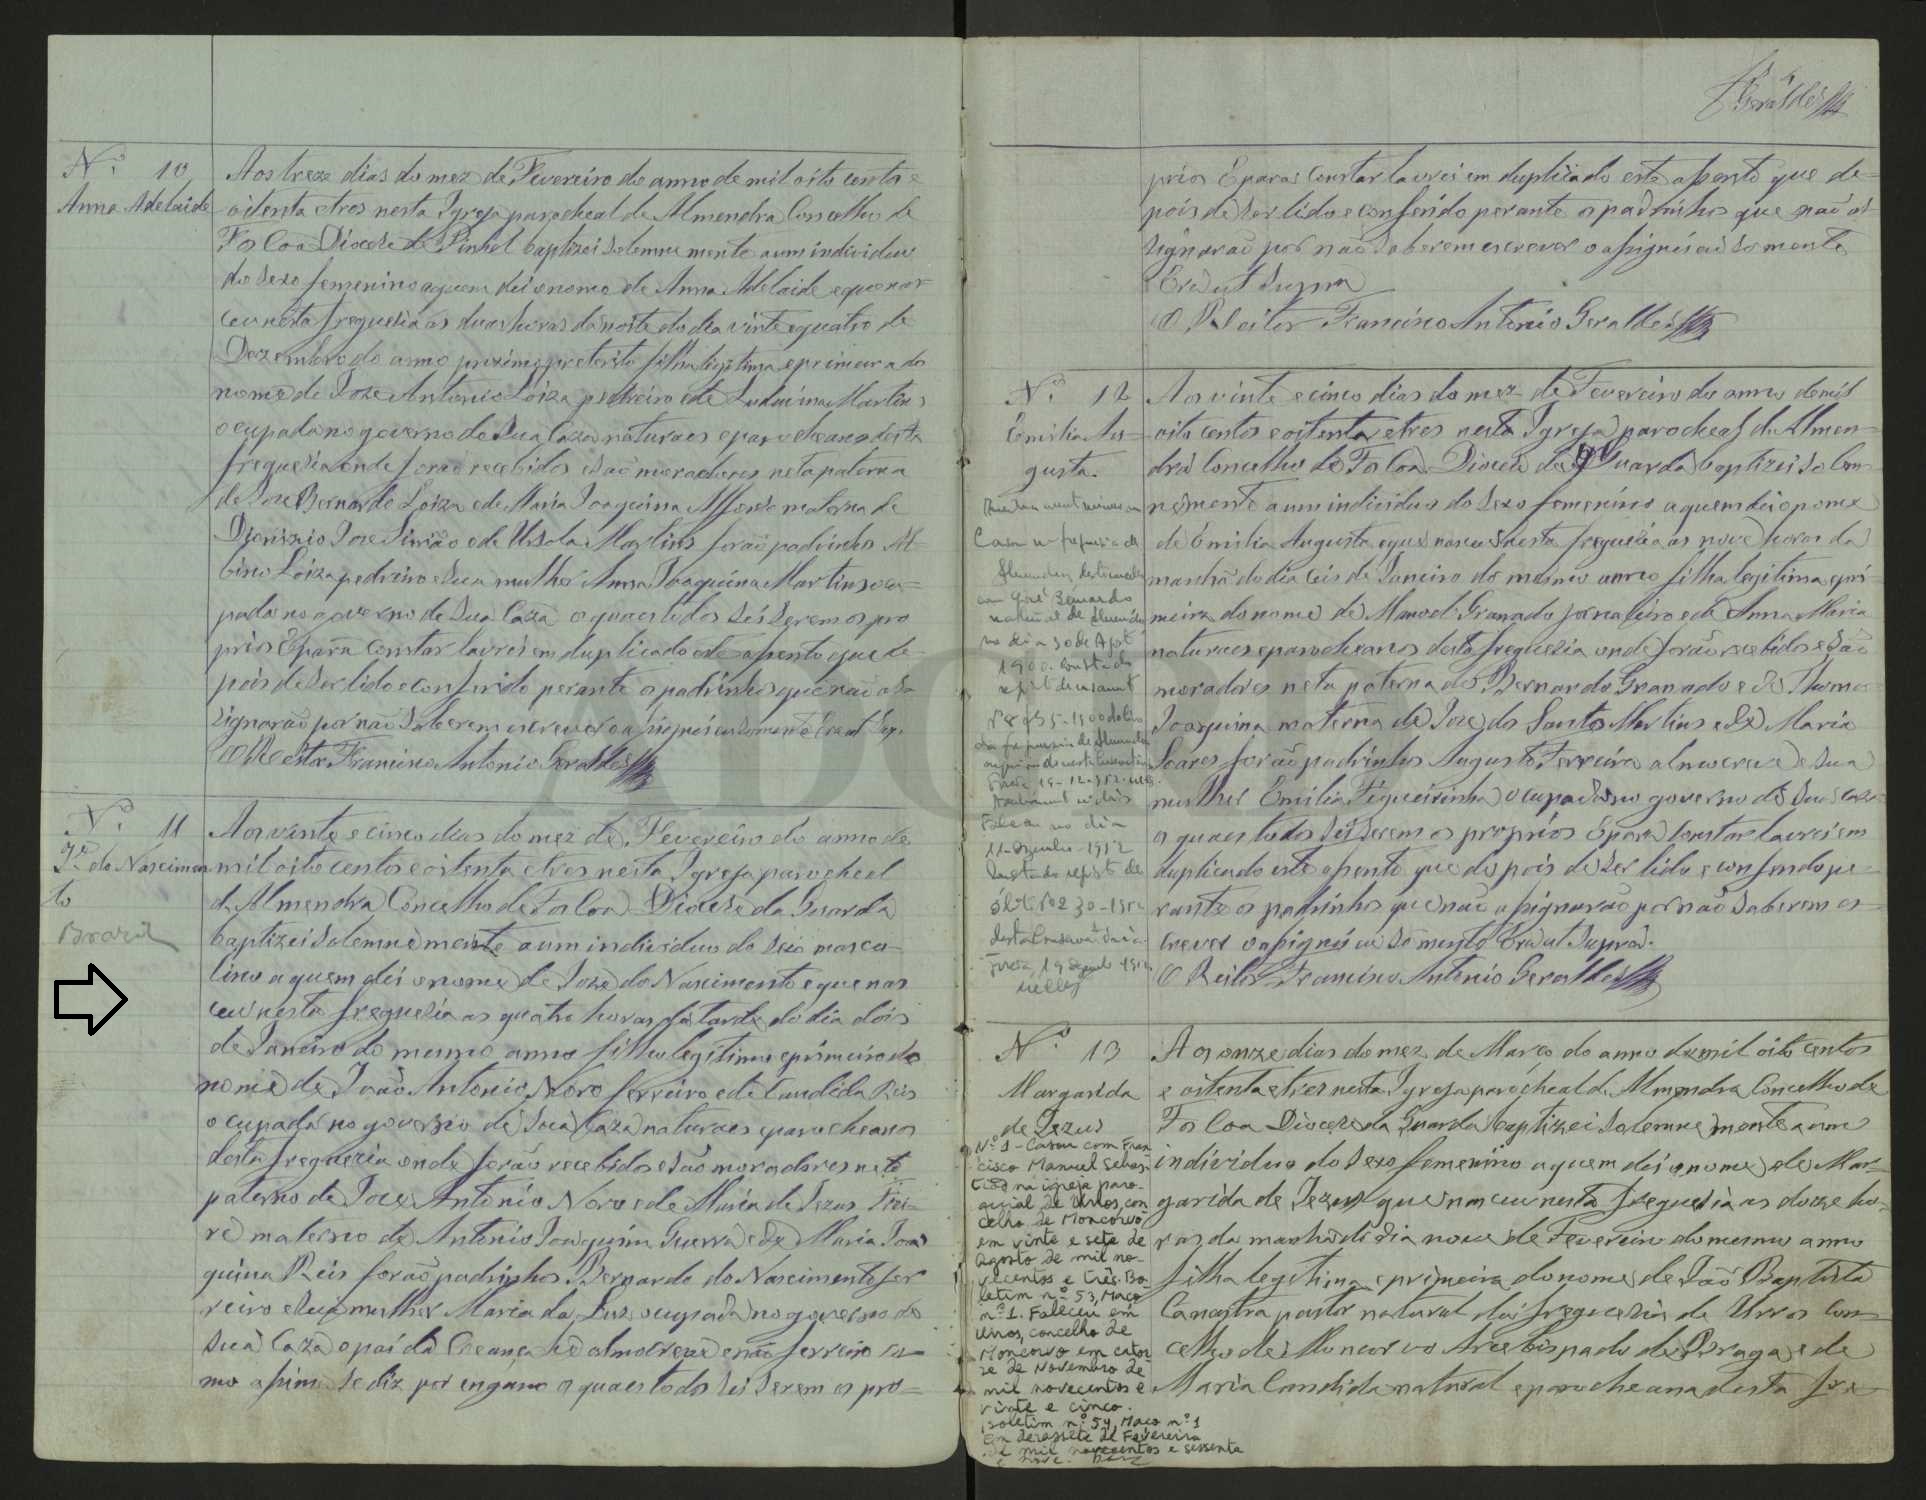 Nº 10
Anna Adelaide
Aos treze dias do mez de Fevereiro do anno de mil oito centos e
oitenta e tres nesta Igreja parocheal de Almendra Concelho de
Foscoa Diocese de Pinhel baptizei solemnemente a um individuo
do sexo femenino a quem dei o nome de Anna Adelaide e que nas
ceu nesta freguesia as duas horas da noite do dia vinte e quatro de
Dezembro do anno proximo preterito filha legitima e primeira do
nome de Joze Antonio Loiza pedreiro e de Ludovina Martins
ocupada no governo de sua Caza naturaes e parocheanos desta
freguesia onde forão recebidos e são moradores neta paterna
de Joze Bernardo Loiza e de Maria Joaquina Affonso materna de
Dionizio Joze Simão e de Ursola Martins forão padrinhos Al-
bino Loiza pedreiro e sua mulher Anna Joaquina Martins ocu-
pada no governo de sua Caza os quaes todos sei serem os pro
prios E para constar lavrei em duplicado este assento que de-
pois de ser lido e conferido perante os padrinhos que não as
signarão por não saberem escrever o assignei eu somente Era ut Sup.
O Reitor Francisco Antonio Geraldes
Nº 11
Je. do Nascimen
to
Brazil
Aos vinte e cinco dias do mez de Fevereiro do anno de
mil oito centos e oitenta e tres nesta Igreja parocheal
de Almendra Concelho de Foscoa Diocese da Guarda
baptizei solemnemente a um individuo do sexo mascu-
lino a quem dei o nome de Joze do Nascimento e que nas
ceu nesta freguesia as quatro horas da tarde do dia dois
de Janeiro do mesmo anno filho legitimo e primeiro do
nome de João Antonio Novo ferreiro e de Candida Reis
ocupada no governo de sua Caza naturaes e parocheanos
desta freguesia onde forão recebidos e são moradores neto
paterno de Joze Antonio Novo e de Maria de Jezus Frei-
re materno de Antonio Joaquim Guerra e de Maria Joa
quina Reis forão padrinhos Bernardo do Nascimento fer
reiro e sua mulher Maria da Luz ocupada no governo de
sua Caza o pai da Creança he almocreve e não ferreiro co-
mo assima se diz por engano os quaes todos sei serem os pro-
Geraldes
prios E para constar lavrei em duplicado este assento que de-
pois de ser lido e conferido perante os padrinhos que não as-
signarão por não saberem escrever o assignei eu somente
Era ut Supra
O Reitor Francisco Antonio Geraldes
Nº 12
Emilia Au-
gusta.
Casou na freguesia de
com José Bernardo
natural de Almendra
no dia 30 de Agosto
1900. Consta do
Faleceu no dia
11-Dezembro-1952
Aos vinte e cinco dias do mez de Fevereiro do anno de mil
oito centos e oitenta e tres nesta Igreja parocheal de Almen-
dra Concelho de Foscoa Diocese da Guarda baptizei solem-
nemente a um individuo do sexo femenino a quem dei o nome
de Emilia Augusta e que nasceu nesta freguesia as nove horas da
manhã do dia seis de Janeiro do mesmo anno filha legitima e pri-
meira do nome de Manoel Granado jornaleiro e de Anna Maria
naturaes e parocheanos desta freguesia onde forão recebidos e são
moradores neta paterna de Bernardo Granado e de Thoma-
Joaquina materna de Joze dos Santos Martins e de Maria
Soares forão padrinhos Augusto Ferreira almocreve e sua
mulher Emilia Figueirinha ocupada no governo de sua caza
os quaes todos sei serem os proprios E para constar lavrei em
duplicado este assento que depois de ser lido e conferido pe-
rante os padrinhos que não assignarão por não saberem es-
crever o assignei eu somente Era ut Supra.
O Reitor Francisco Antonio Geraldes
Nº 13
Margarida
de Jezus
Nº 1 - Casou com Fran
cisco Manuel Sebas-
tião na igreja paro-
quial de Urros, con
celho de Moncorvo
em vinte e sete de
Agosto de mil no-
vecentos e três. Bo
letim nº 53, Maço
nº 1. Faleceu em
Urros, concelho de
Moncorvo em cator
ze de Novembro de
mil novecentos e
vinte e cinco.
Boletim nº 54, Maço nº 1
Em dezassete de Fevereiro
de mil novecentos e sessenta
e nove.
Aos onze dias do mez de Março do anno de mil oito centos
e oitenta e tres nesta Igreja parocheal de Almendra Concelho de
Foscoa Diocese da Guarda baptizei solemnemente a um
individuo do sexo femenino a quem dei o nome de Mar-
garida de Jezus que nasceu nesta freguesia as doze ho-
ras da manhã do dia nove de Fevereiro do mesmo anno
filha legitima e primeira do nome de João Baptista
Canastra pastor natural da freguezia de Urros Con-
celho de Moncorvo Arcebispado de Braga e de
Maria Candida natural e parocheana desta fre-